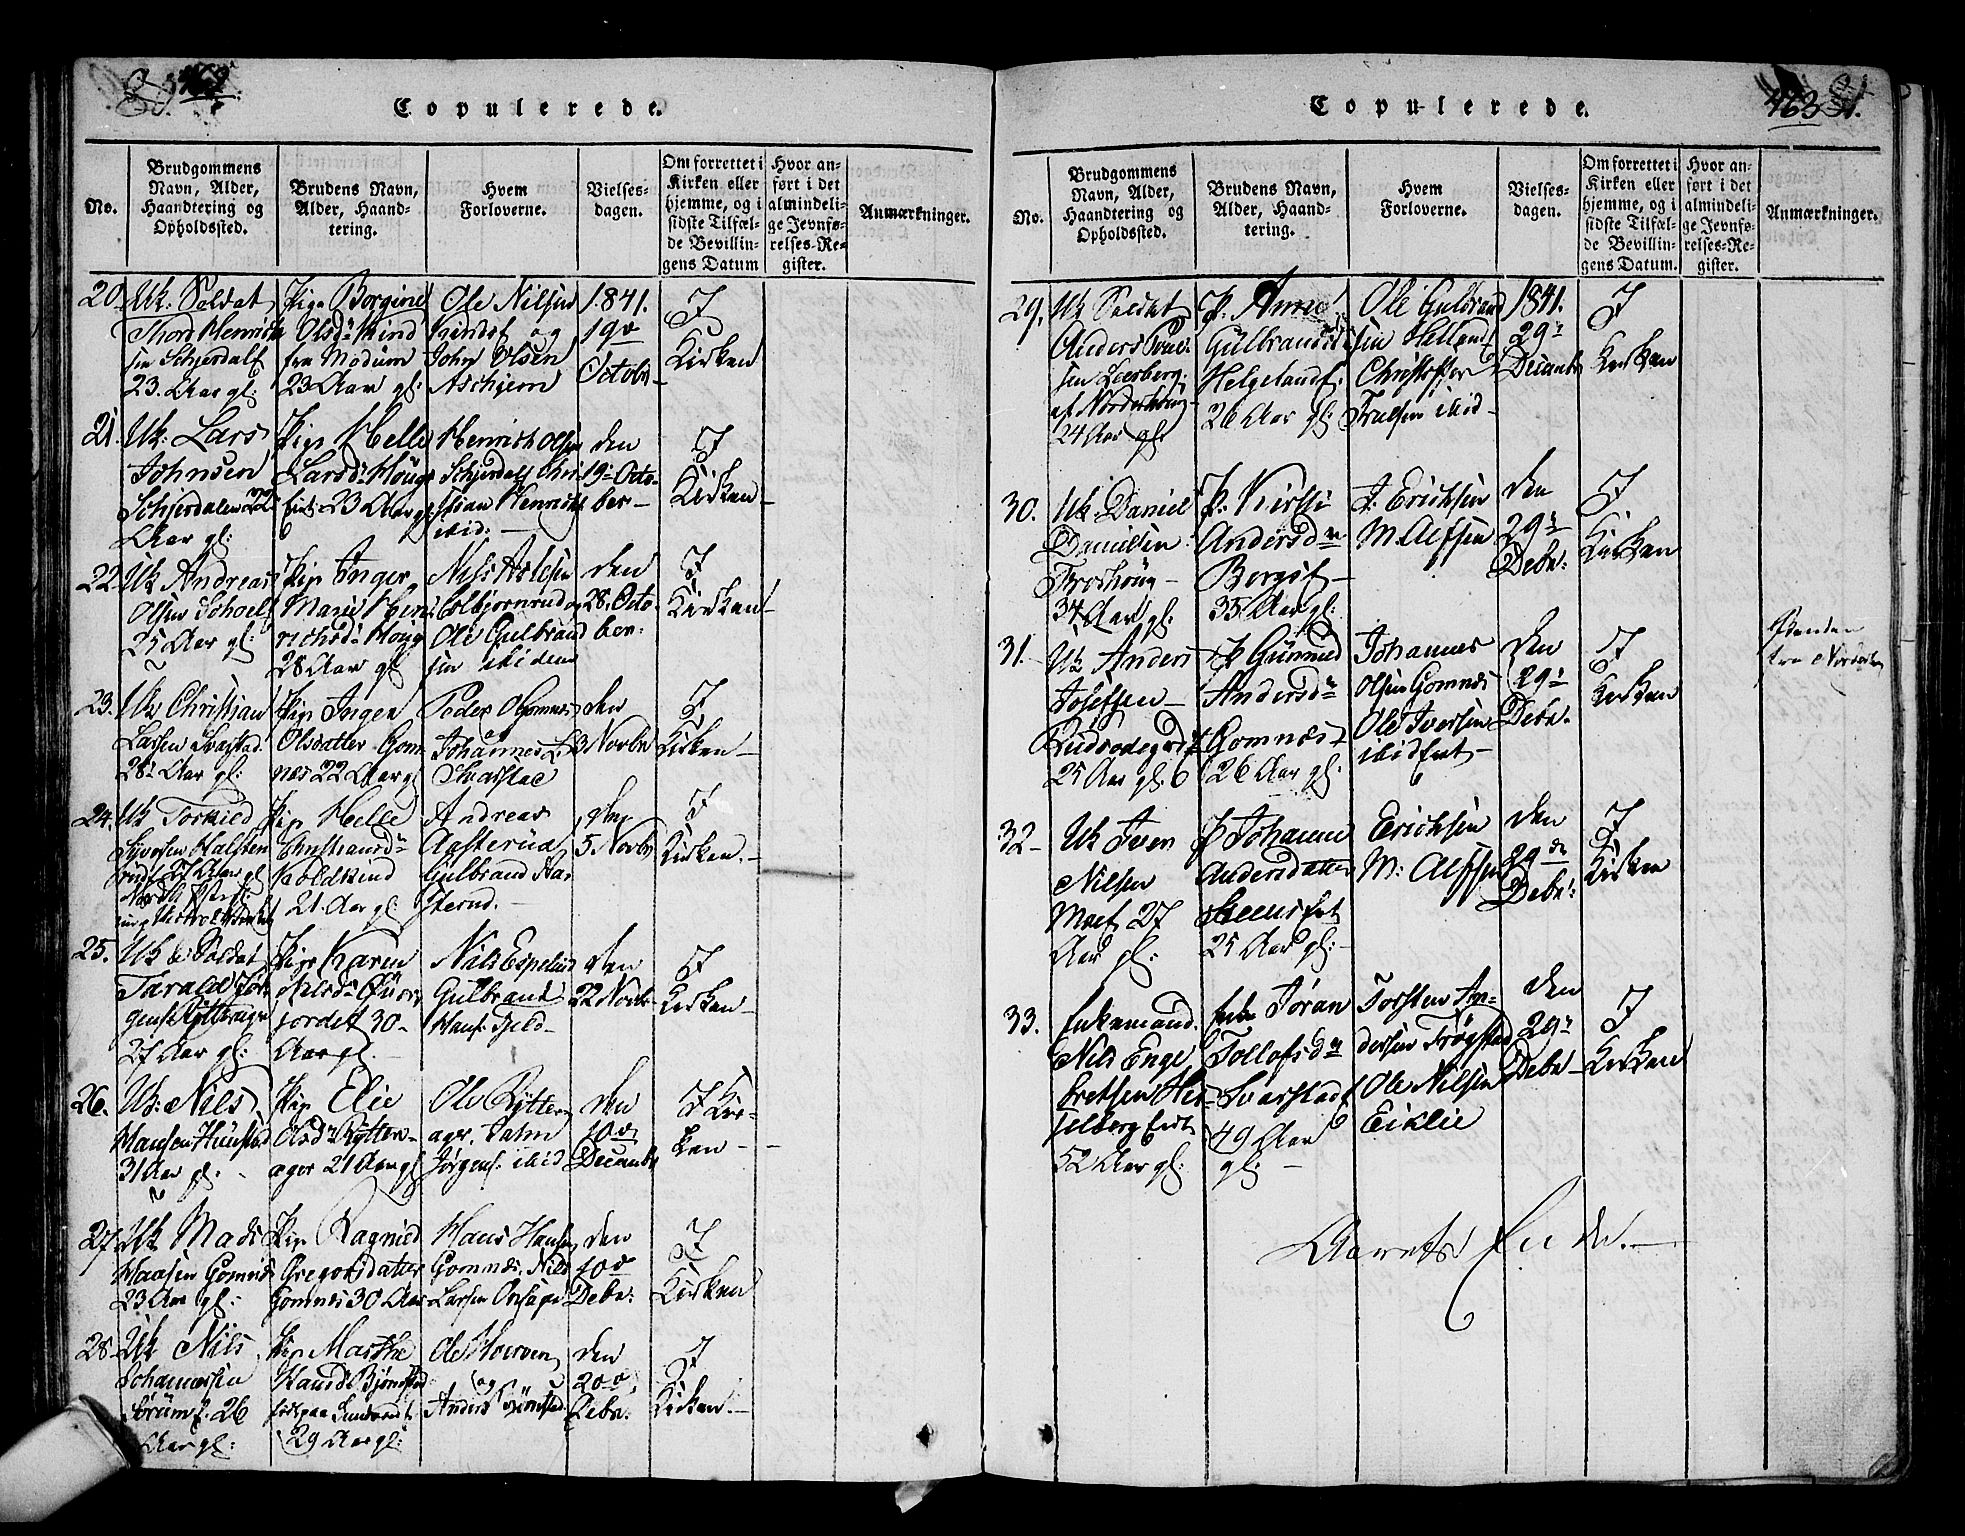 462
Copulerede.
No.
Brudgommens
Navn, Alder,
Haandtering og
Opholdssted.
Brudens Navn,
Alder, Haand-
tering.
Hvem
Forloverne.
Vielses-
dagen.
Om forrettet i
Kirken eller
hjemme, og i
sidste Tilfæl-
de Bevillin-
gens Datum
Hvor an-
ført i det
almindeli-
ge Jevnfø-
relses-Re-
gister.
Anmærkninger.
20.
Uk. Soldat
Thord Henrich
sen Schjerdalf
23. Aar gl:
Pige Borgine
Olsdr. Kind
fra Modum
23 Aar gl:
Ole Nilsen
og
John Olsen
Aschjem
1841.
19de
Octobr
I
Kirken
21.
Uk: Lars
Johnsen
Schjerdalen 22
Aar gl:
Pige Helle
Larsdr Houg
23 Aar gl
Henrich Olsen
Schjerdalf Chri
stian Henrichs
ibid: —
den
19de Octo-
ber —
I
Kirken —
22.
Uk Andreas
Olsen
25 Aar gl:
Pige Inger
Marie Hen
richsdr Houg
28 Aar gl
Nils Aslesen
Esbjørnrud og
Ole Gulbrand
sen ibidem
den
28. Octo
ber.
I
Kirken —
23.
Uk Christian
Larsen Svarstad
28 Aar gl:
Pige Ingen
Olsdatter Gom
næs 22 Aar gl
Peder O Gomnes
Johannes L.
Svarstad
den
3 Novbr
I
Kirken —
24.
Uk Torkild
Syversen Halsten
rud 27 Aar gl
Pige Helle
Christiansdr
Koldkind
21. Aar gl:
Andreas
Aasterud
Gulbrand Aa
sterud. —
den
5 Novbr
I
Kirken. —
25.
Uk & Soldat
Tarald Jør
gens Rytterager
27 Aar gl:
Pige Karen
Nilsdr
jordet 30-
Aar gl.
Nils Espelund
Gulbrand
Hans. Fjeld-
den
22 Novbr
I
Kirken —
26.
Uk: Nils
Hansen Hunstad
31 Aar gl:
Pige Elie
Olsdr Rytter-
ager 21 Aar gl
Ole Rytter
ager. Jahn
Jørgens. ibid
den
10de
Decembr
I Kir-
ken —
27.
Uk Mads
Hansen Gomnes
23 Aar gl:
Pige Ragnild
Gregorsdatter
Gomnes 30 Aar
Hans Hansen
Gomnes. Nils
Larsen Onsager
den
10de
Debr:
I
Kirken
28
Uk Nils
Johannesen
Sørum f. 26
Aar gl:
Pige Marthe
Hansd: Bjønstad
født paa
29 Aar gl:
Ole Hurven
og
Anders Bjønstad
den
20de
Debr:
I
Kirken. —
463
Copulerede.
No.
Brudgommens
Navn, Alder,
Haandtering og
Opholdssted.
Brudens Navn,
Alder, Haand-
tering.
Hvem
Forloverne.
Vielses-
dagen.
Om forrettet i
Kirken eller
hjemme, og i
sidste Tilfæl-
de Bevillin-
gens Datum.
Hvor an-
ført i det
almindeli-
ge Jevnfø-
relses-Re-
gister.
Anmærkninger.
29.
Uk Soldat
Anders Povel
sen Leerberg
af Norderhoug
24 Aar gl:
P. Anne
Gulbrandsd
Helgelandf:
26 Aar gl:
Ole Gulbrand
sen Helland
Christopher
Trulsen ibid —
1841.
29de
Decembr
I
Kirken
30.
Uk. Daniel
Danielsen
Froshoug —
34 Aar gl:
P. Kirsti
Andersdr
Borgsf —
35 Aar gl:
J. Erichsen
M. Alfsen
den
29de
Debr:
I
Kirken
31.
Uk Anders
Joseffsen —
25 Aar gl:
P Gunnild
Andersdr
Gomnes —
26 Aar gl:
Johannes
Olsen Gomnes
Ole Iversen
ibid
den
29de
Debr.
I
Kirken
fra
32-
Uk Iver
Nilsen
Moef 27
Aar gl:
P Johanne
Andersdatter
25 Aar gl: —
Erichsen
M: Alfsen
den
29de
Debr:
I
Kirken
33.
Enkemand.
Nils Enge
bretsen Hes
selberg
52 Aar gl:
Enke Jøran
Tollofsdr
Svarstad
49 Aar
gl: —
Torsten An-
dersen Frøgstad
Ole Nilsen
Eiklie
den
29de
Debr —
I
Kirken
Aarets Ende. —